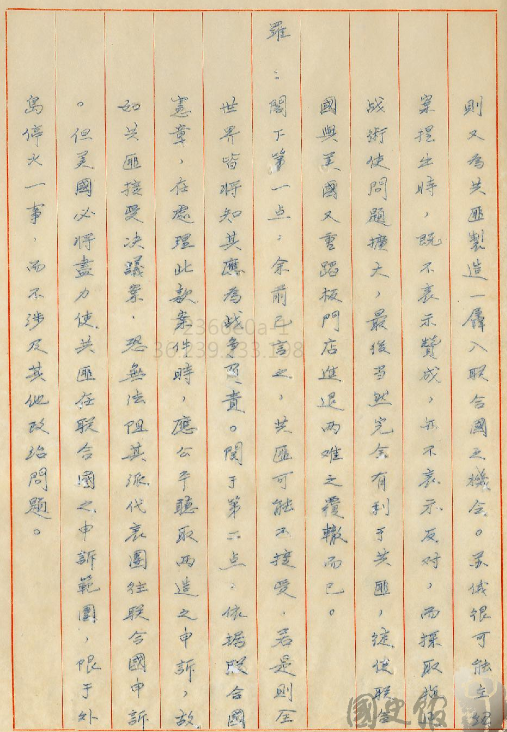 則又為共匪製造一羼入聯合國之機會。蘇俄很可能在紐
案提出時，既不表示贊成，亦不表示反对，而採取
战術使問題擴大，最後当然完全有利于共匪，徒使联合
國與美國又重蹈板門店進退两难之覆轍而已。
羅：閣下第一点，余前已言之，共匪可能不接受，若是則全
世界皆將知其應為战争負責。関于第二点，依據联合國
憲章，在處理此欵案件時，應公平聽取两造之申訴，故
如共匪接受决議案，恐無法阻其派代表團往联合國申訴
。但美國必將盡力使共匪在联合國之申訴範圍，限于外
島停火一事，而不涉及其他政治問題。
國史館